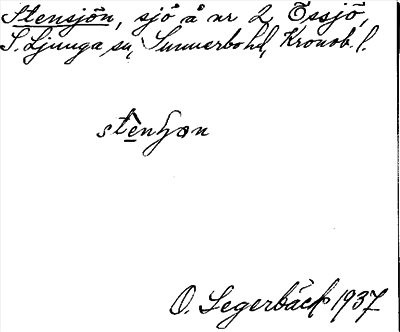 Stensjön, sjö å nr 2 Össjö,
S. Ljunga sn, Sunnerbo hd, Kronob. l.
stènʃɔn
O. Segerbäck 1937